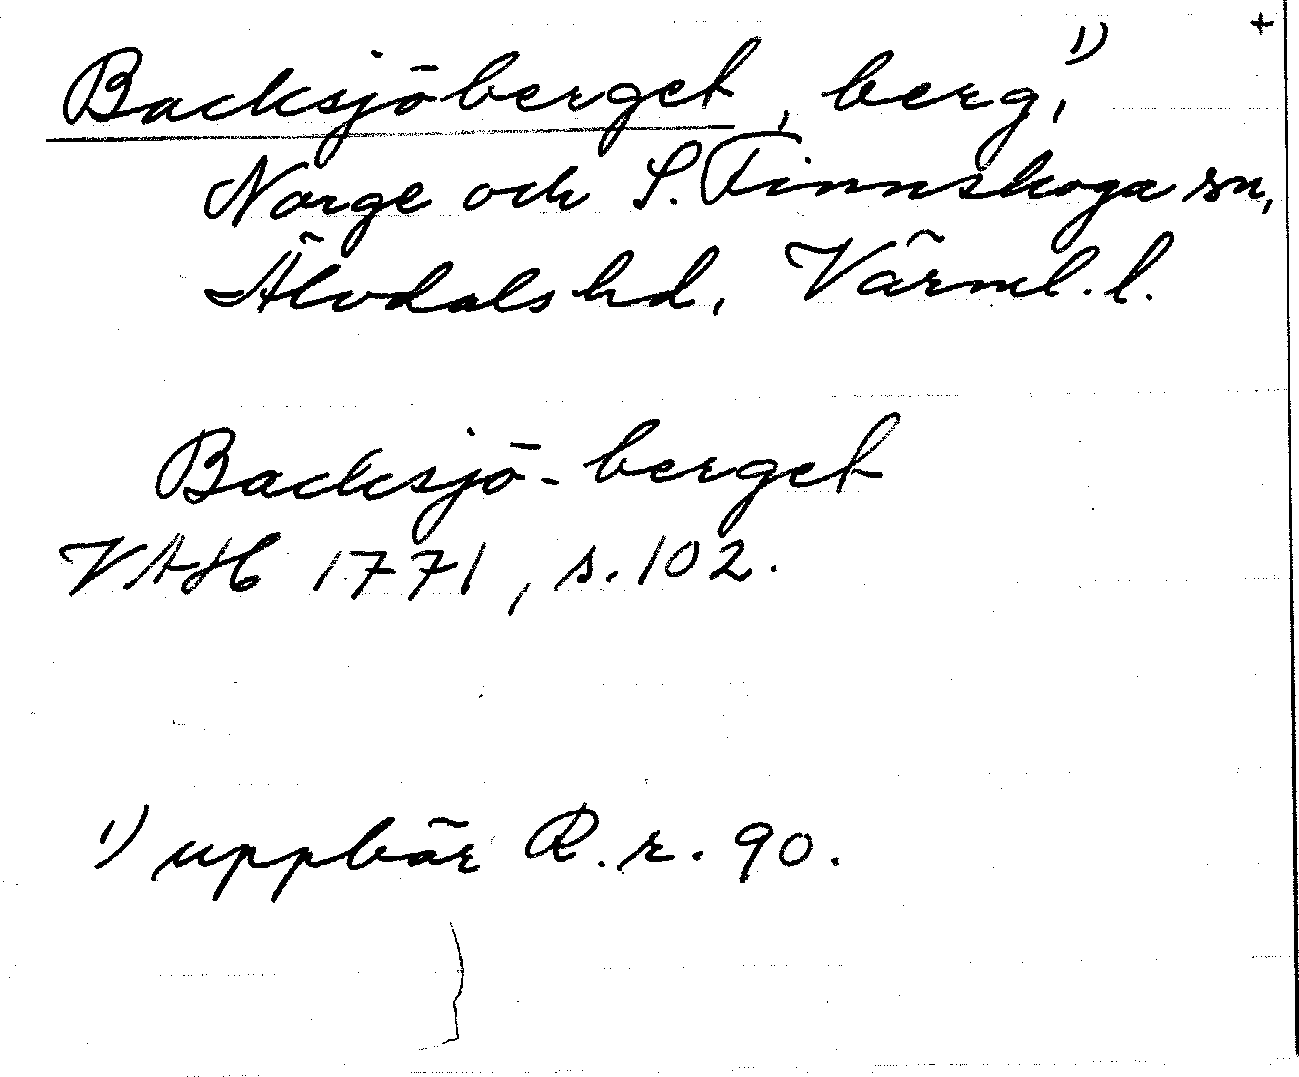 +
Backsjöberget, berg,¹⁾
Norge och S. Finnskoga sn,
Älvdals hd, Värml. l.
Backsjö-berget
VAH 1771, s. 102.
¹⁾ uppbär R. r. 90.